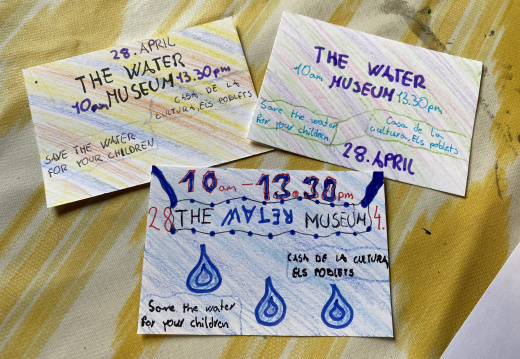 28. APRIL
THE WATER
MUSEUM
10am 13.30pm
CASA DE LA
CULTURA, ELS POBLETS
SAVE THE WATER
FOR YOUR CHILDREN
THE WATER
10am MUSEUM 13.30pm
Save the water
for your children
Casa de la
cultura, Els poblets
28. APRIL
10am - 13.30pm
28 THE WATER MUSEUM 4.
CASA DE LA CULTURA
ELS POBLETS
Save the water
for your children